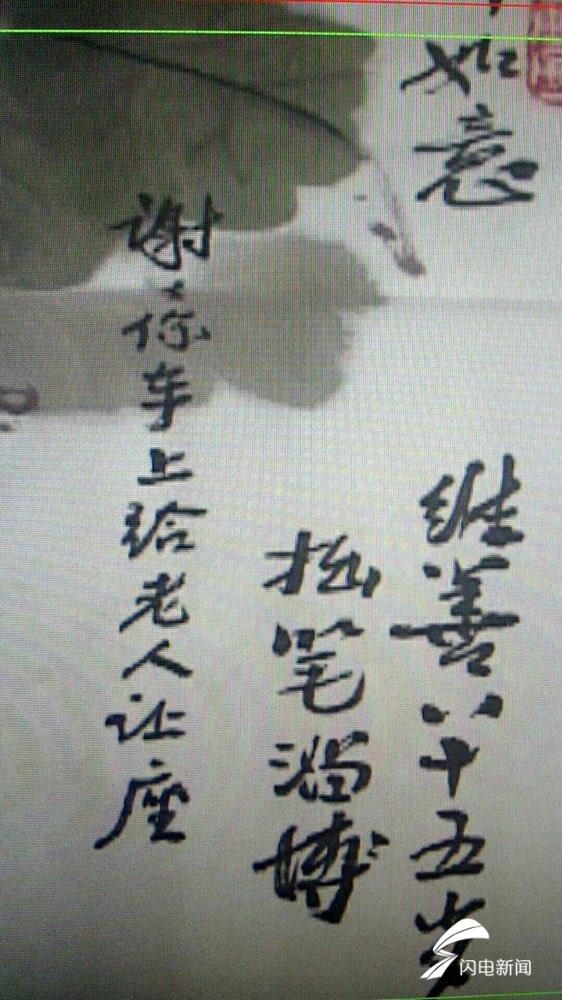 如意
维善八十五岁
拙笔淄博
谢々你车上给老人让座
闪电新闻